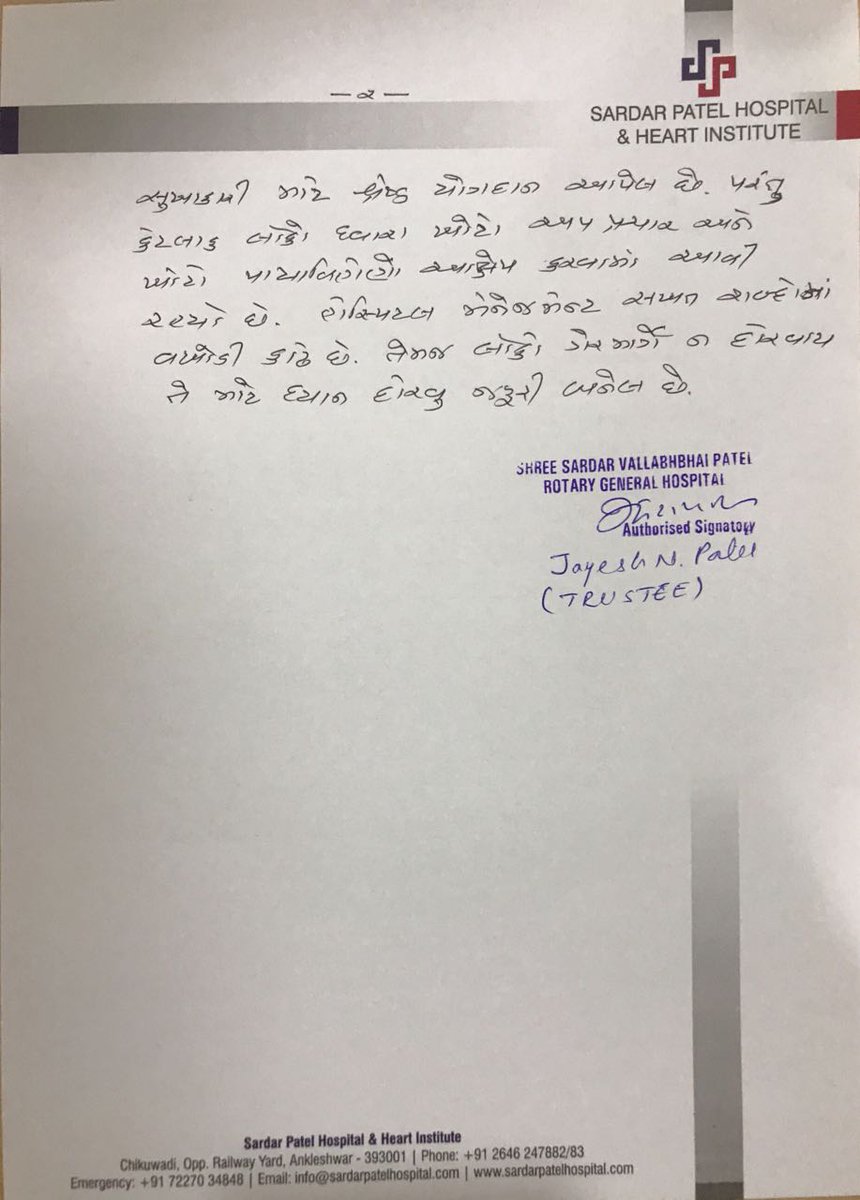 — ૨ —
SARDAR PATEL HOSPITAL
& HEART INSTITUTE
સુખાકારી માટે શ્રેષ્ઠ યોગદાન આપેલ છે. પરંતુ
કેટલાક લોકો દ્વારા ખોટો અપપ્રચાર અને
ખોટો પાયાવિહોણો આક્ષેપ કરવામાં આવી
રહયો છે. હોસ્પિટલ મેનેજમેન્ટ સખત શબ્દોમાં
વખોડી કાઢે છે. તેમજ લોકો ગેરમાર્ગે ન દોરવાય
તે માટે ધ્યાન દોરવુ જરૂરી બનેલ છે.
SHREE SARDAR VALLABHBHAI PATEL
ROTARY GENERAL HOSPITAL
Authorised Signatory
Jayesh N. Patel
(TRUSTEE)
Sardar Patel Hospital & Heart Institute
Chikuwadi, Opp. Railway Yard, Ankleshwar - 393001 | Phone: +91 2646 247882/83
Emergency: +91 72270 34848 | Email: info@sardarpatelhospital.com | www.sardarpatelhospital.com